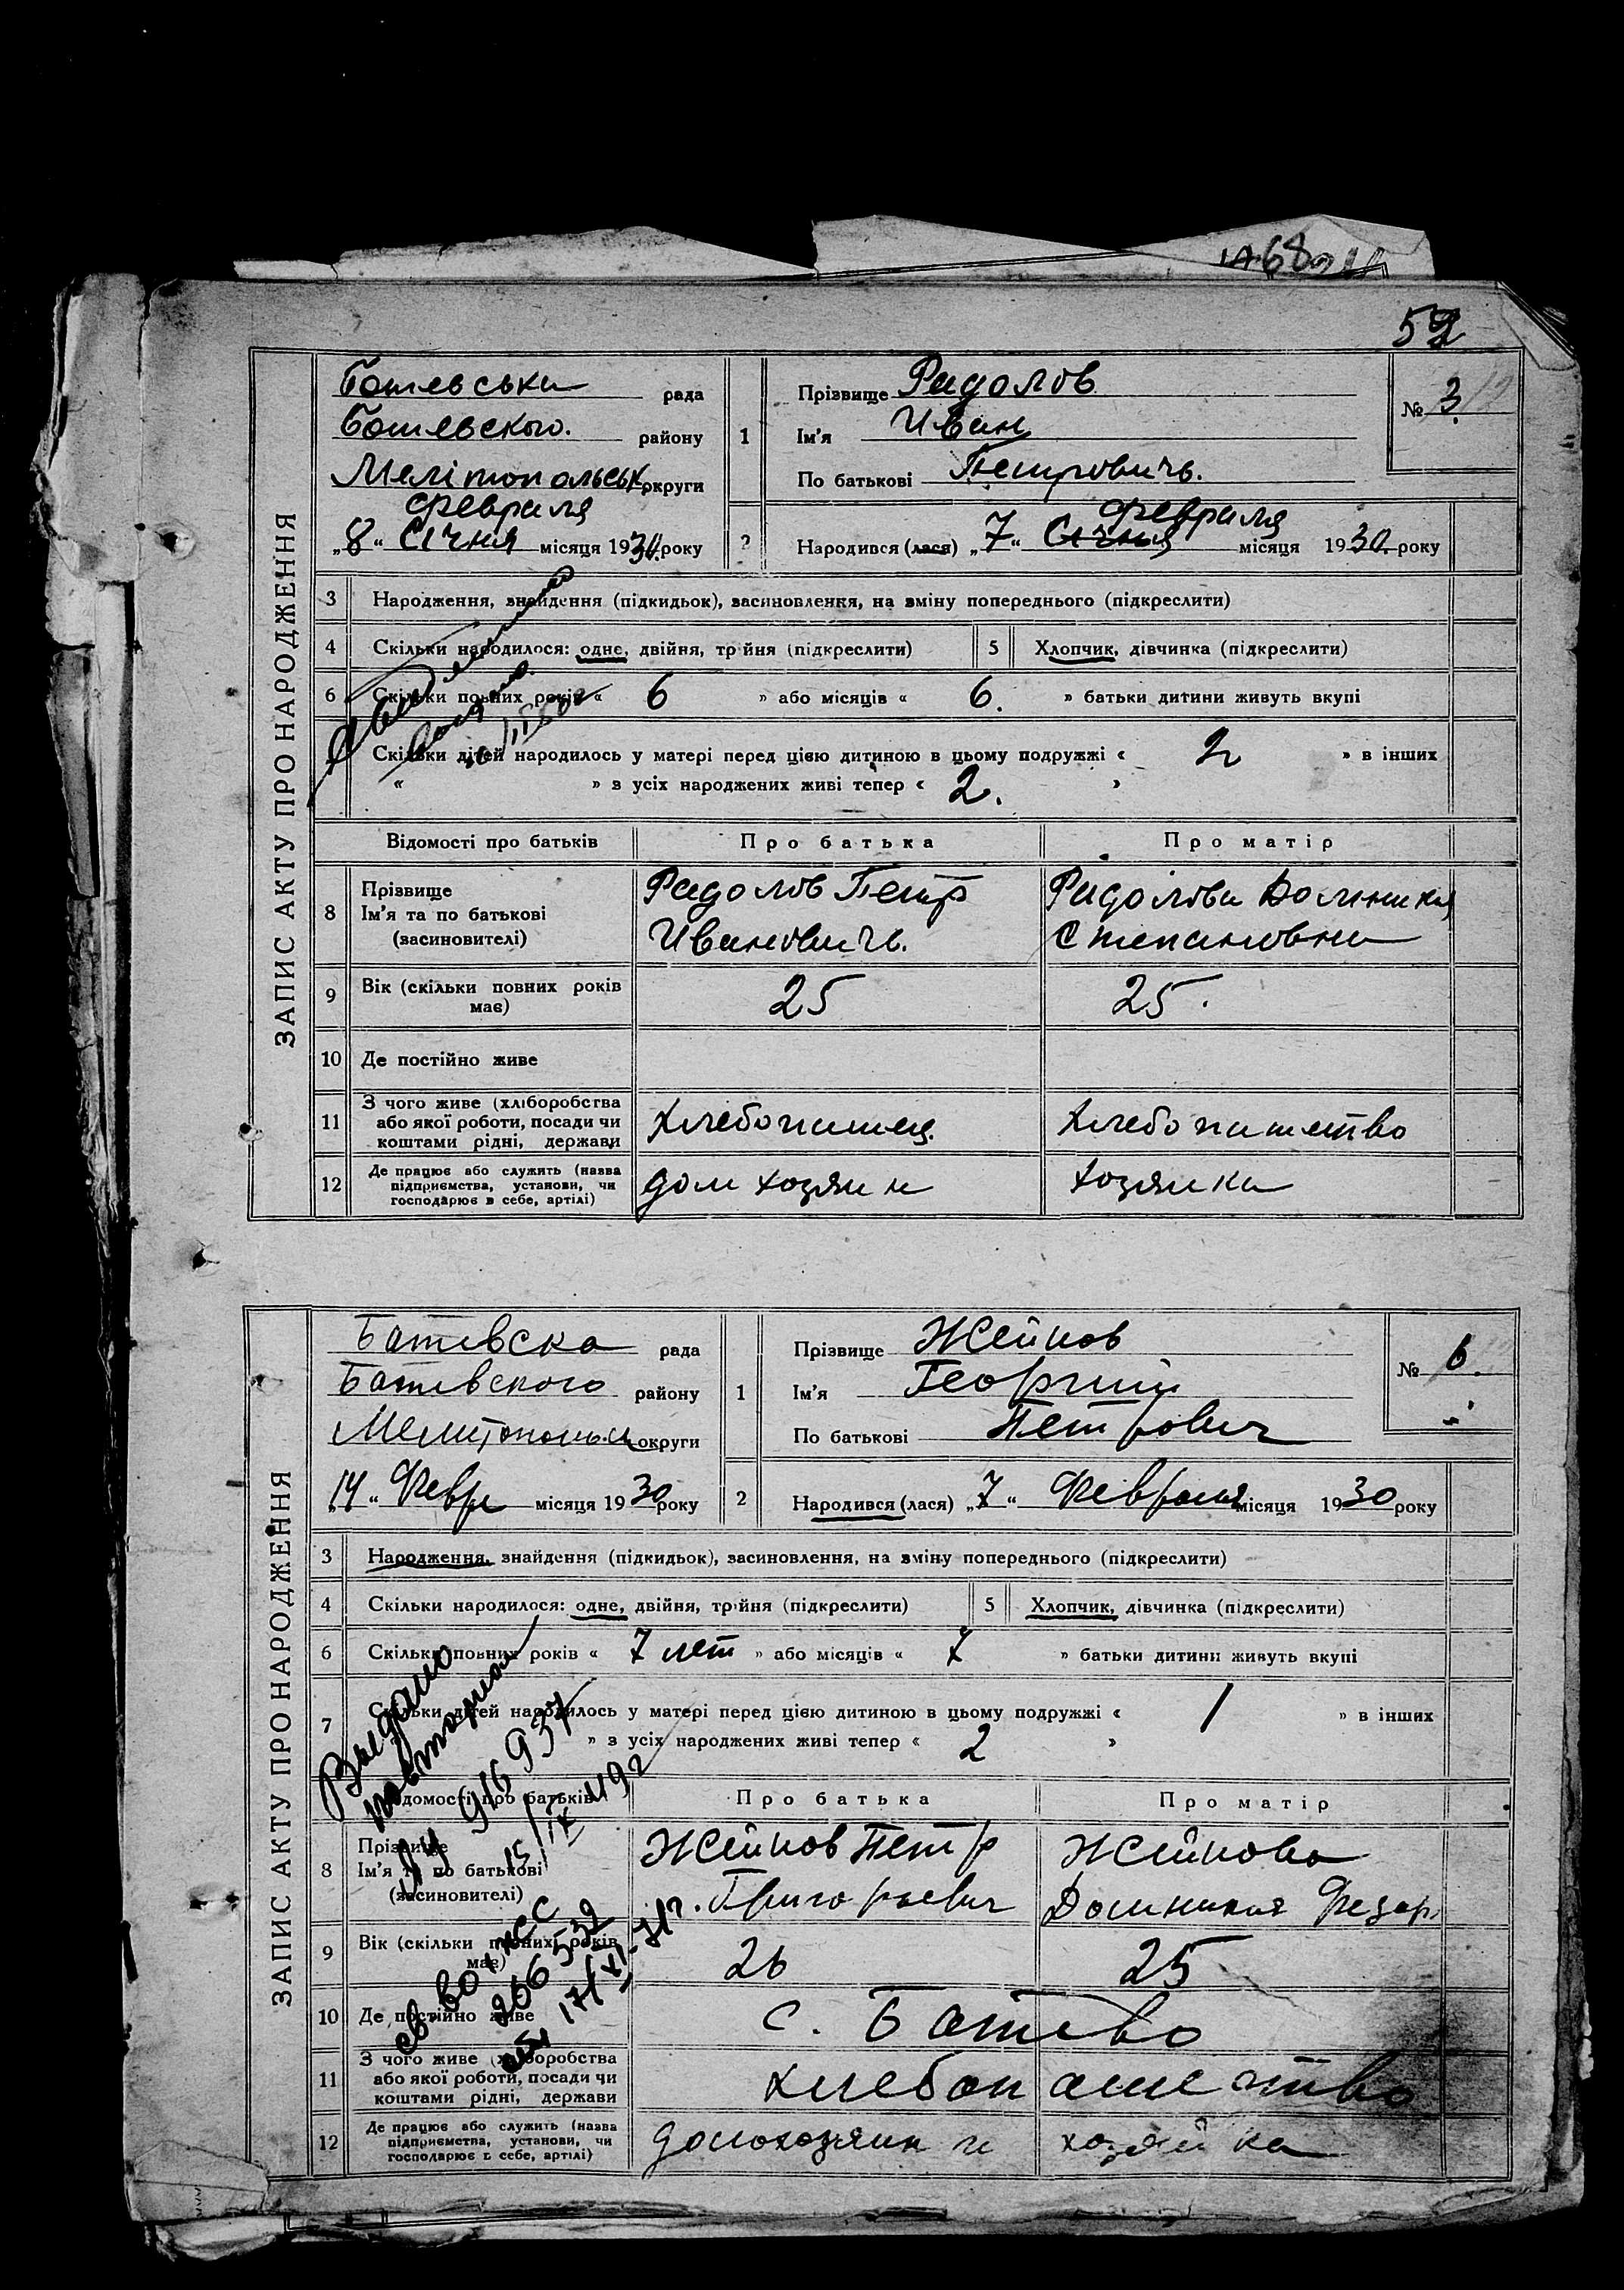 52
ЗАПИС АКТУ ПРО НАРОДЖЕННЯ
Ботевська рада
Ботевского. району
Мелітопольськ округи
февраля
„8“ Січня місяця 1930. року
1
Прізвище Радолов
Ім'я Иван
По батькові Петровичъ.
№ 3
2
февраля
Народився (лася) „7“ Січня місяця 1930. року
3 Народження, знайдення (підкидьок), засиновлення, на зміну попереднього (підкреслити)
4 Скільки народилося: одне, двійня, трійня (підкреслити)
5 Хлопчик, дівчинка (підкреслити)
6 Скільки повних років « 6 » або місяців « 6. » батьки дитини живуть вкупі
Скільки дітей народилось у матері перед цією дитиною в цьому подружжі « 2 » в інших
« » з усіх народжених живі тепер « 2. »
Відомості про батьків Про батька Про матір
8 Прізвище
Ім'я та по батькові
(засиновителі)
Радолов Петр
Ивановичъ.
Радолова Домникия
Степановна
9 Вік (скільки повних років
має)
25
25.
10 Де постійно живе
11 З чого живе (хліборобства
або якої роботи, посади чи
коштами рідні, держави
Хлебопашец.
Хлебопашество
12 Де працює або служить (назва
підприємства, установи, чи
господарює в себе, артілі)
дом хозяин
хозяйка
ЗАПИС АКТУ ПРО НАРОДЖЕННЯ
Ботевска рада
Ботевского району
Мелитопольск округи
„14“ Февр місяця 1930 року
1
Прізвище Жейнов
Ім'я Георгий
По батькові Петрович
№ 6.
2 Народився (лася) „7“ Февраля місяця 1930 року
3 Народження, знайдення (підкидьок), засиновлення, на зміну попереднього (підкреслити)
4 Скільки народилося: одне, двійня, трійня (підкреслити)
5 Хлопчик, дівчинка (підкреслити)
6 Скільки повних років « 7 лет » або місяців « 7 » батьки дитини живуть вкупі
7 Скільки дітей народилось у матері перед цією дитиною в цьому подружжі « 1 » в інших
» з усіх народжених живі тепер « 2 »
Выдано
повторное
916937
15/IX 49г
Відомості про батьків Про батька Про матір
8 Прізвище
Ім'я та по батькові
(засиновителі)
Жейнов Петр
Григорьевич
Жейнова
Домникия Федор
9 Вік (скільки повних років
має)
26
25
10 Де постійно живе
с. Ботево
11 З чого живе (хліборобства
або якої роботи, посади чи
коштами рідні, держави
хлебопашество
12 Де працює або служить (назва
підприємства, установи, чи
господарює в себе, артілі)
домохозяин
хозяйка